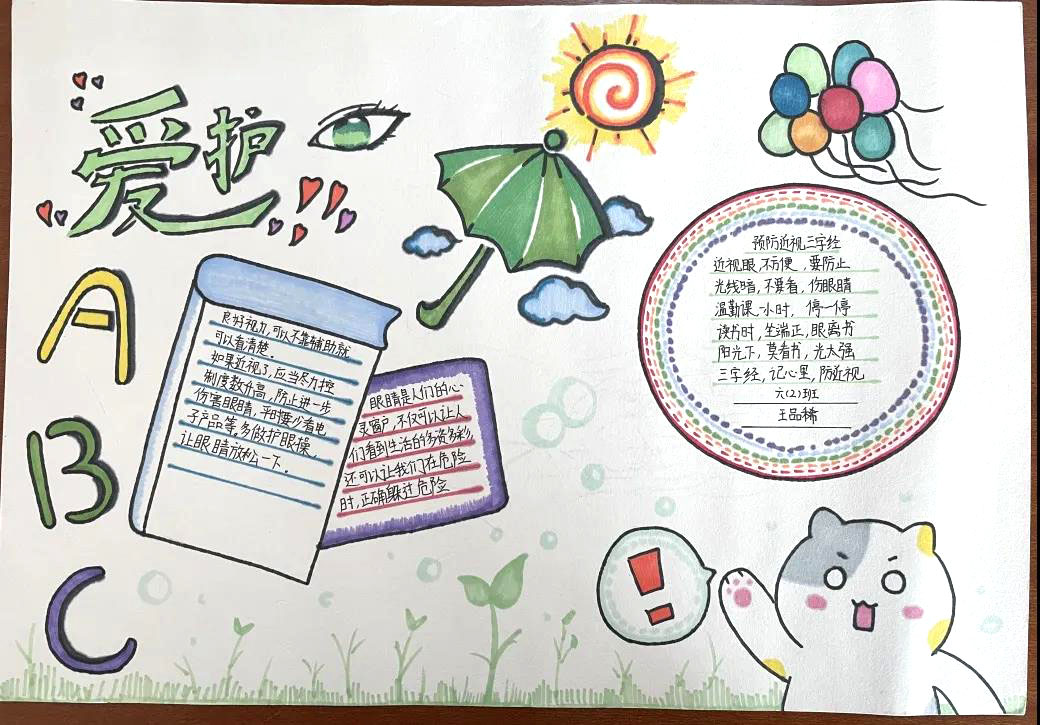 爱护
A
B
C
良好视力,可以不靠辅助就
可以看清楚。
如果近视了,应当尽力控
制度数升高,防止进一步
伤害眼睛,平时要少看电
子产品等,多做护眼操,
让眼睛放松一下。
眼睛是人们的心
灵窗户,不仅可以让人
们看到生活的多姿多彩,
还可以让我们在危险
时,正确躲过危险
预防近视三字经
近视眼,不方便,要防止
光线暗,不要看,伤眼睛
温勤课,一小时,停一停
读书时,坐端正,眼离书
阳光下,莫看书,光太强
三字经,记心里,防近视
六(2)班
王品
!